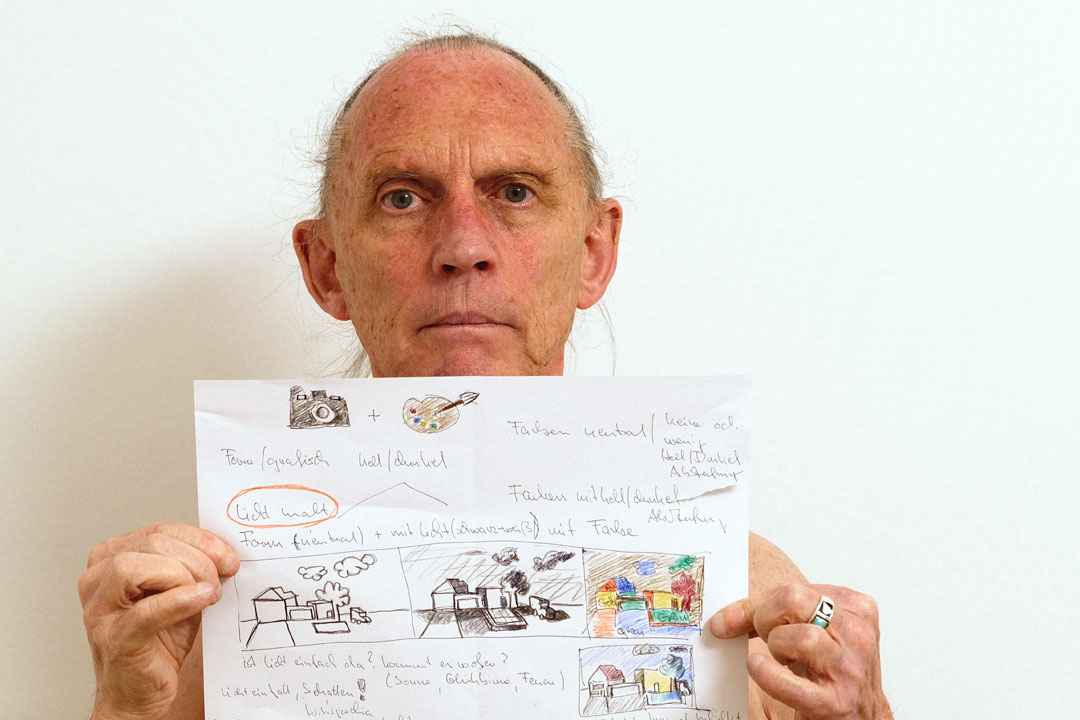 +
Farben neutral / keine od.
wenig
Hell/Dunkel
Abstufung
Form/grafisch hell/dunkel
Licht malt
Farben mit hell/dunkel
Abstufung
Form (neutral) + mit Licht (schwarzweiß) mit Farbe
Gelb
Grün
Grau
ist Licht einfach da? kommt es woher?
(Sonne, Glühbirne, Feuer)
Lichteinfall, Schatten!